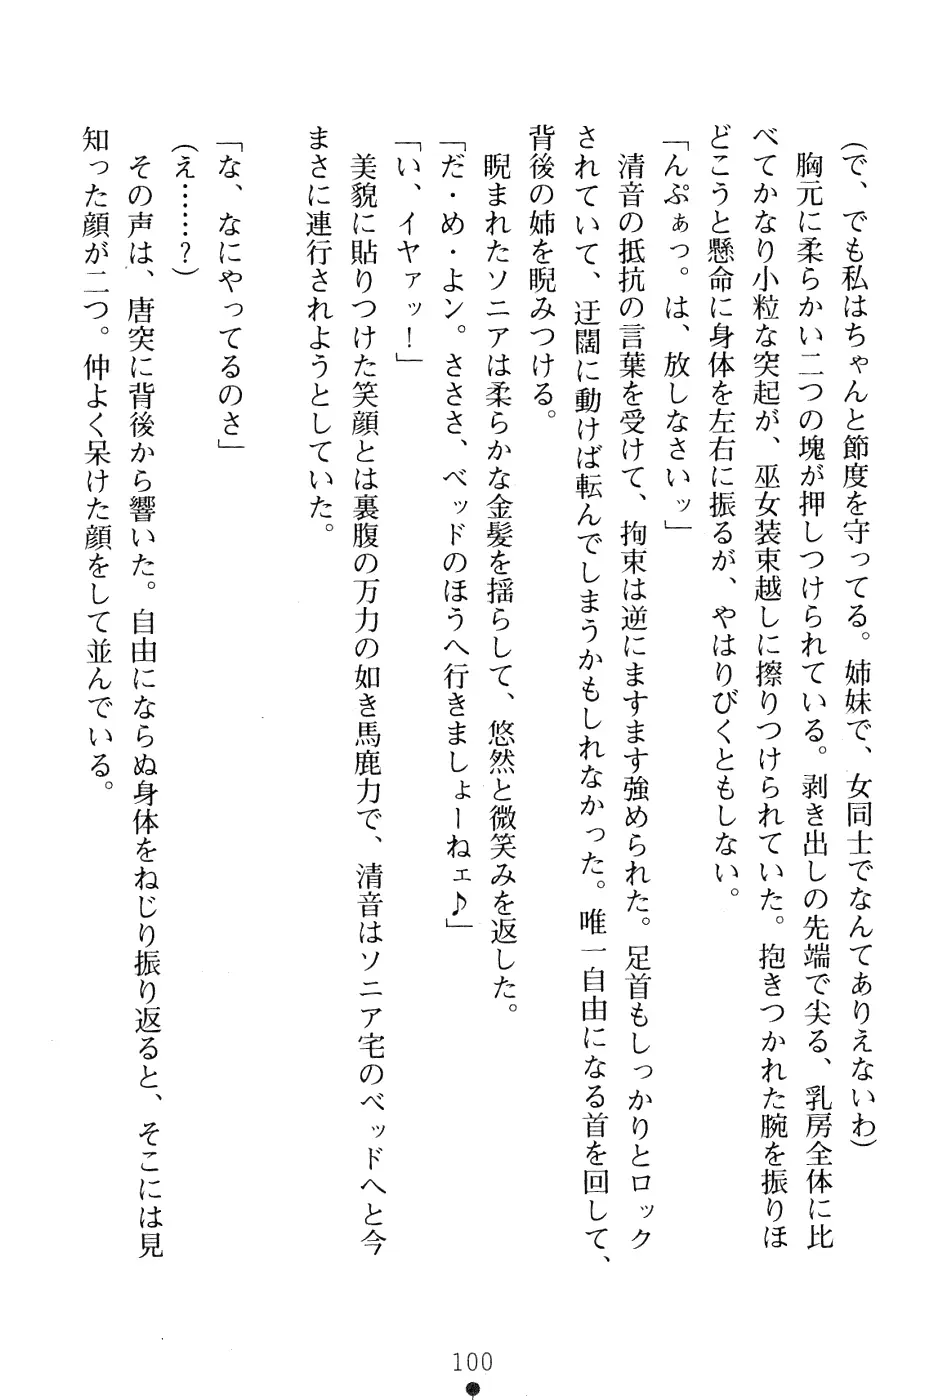 （で、でも私はちゃんと節度を守ってる。姉妹で、女同士でなんてありえないわ）
胸元に柔らかい二つの塊が押しつけられている。剥き出しの先端で尖る、乳房全体に比
べてかなり小粒な突起が、巫女装束越しに擦りつけられていた。抱きつかれた腕を振りほ
どこうと懸命に身体を左右に振るが、やはりびくともしない。
「んぷぁっ。は、放しなさいッ」
清音の抵抗の言葉を受けて、拘束は逆にますます強められた。足首もしっかりとロック
されていて、迂闊に動けば転んでしまうかもしれなかった。唯一自由になる首を回して、
背後の姉を睨みつける。
睨まれたソニアは柔らかな金髪を揺らして、悠然と微笑みを返した。
「だ・め・よン。さささ、ベッドのほうへ行きましょーねェ♪」
「い、イヤァッ！」
美貌に貼りつけた笑顔とは裏腹の万力の如き馬鹿力で、清音はソニア宅のベッドへと今
まさに連行されようとしていた。
「な、なにやってるのさ」
（え……？）
その声は、唐突に背後から響いた。自由にならぬ身体をねじり振り返ると、そこには見
知った顔が二つ。仲よく呆けた顔をして並んでいる。
100